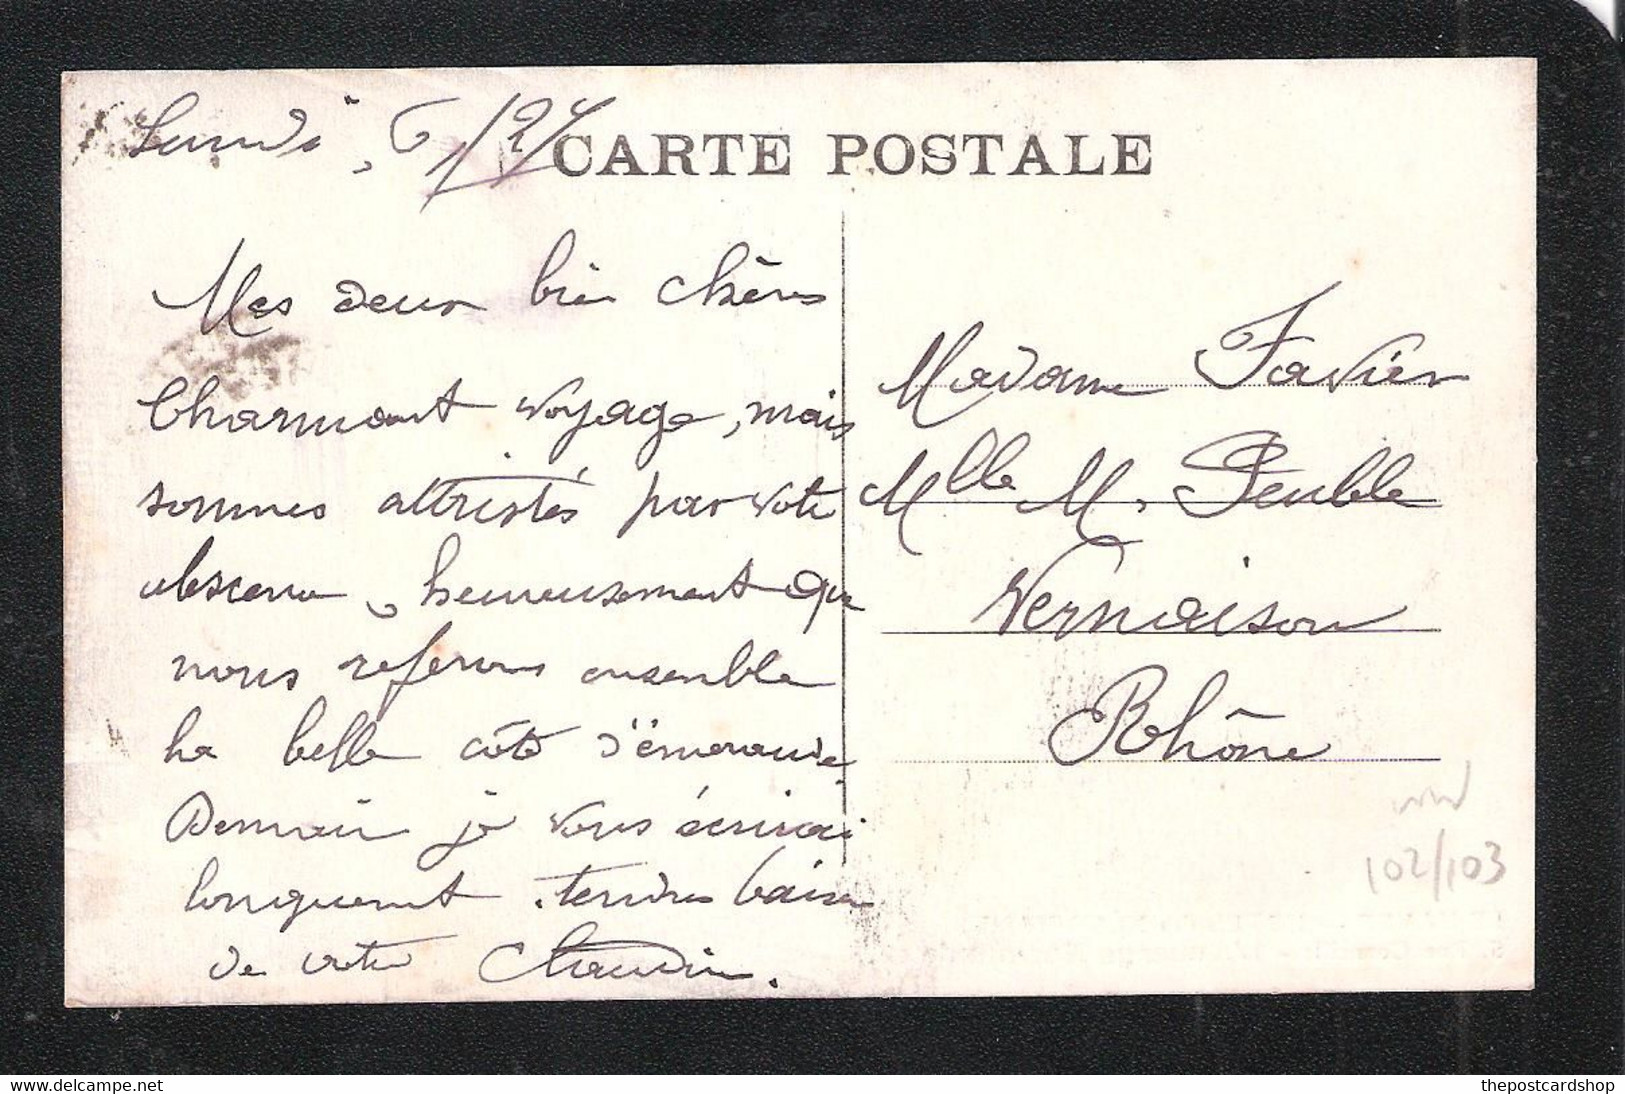 Lundi, 6/24
CARTE POSTALE
Mes deux bien chères
Charmant voyage, mais
sommes attristés par votre
absence, heureusement que
nous referons ensemble
la belle côte d'émeraude.
Demain je vous écrirai
longuement. tendres baisers
de votre Claudia.
Madame Favier
Mlle M. Peuble
Vernaison
Rhône
102/103
thepostcardshop